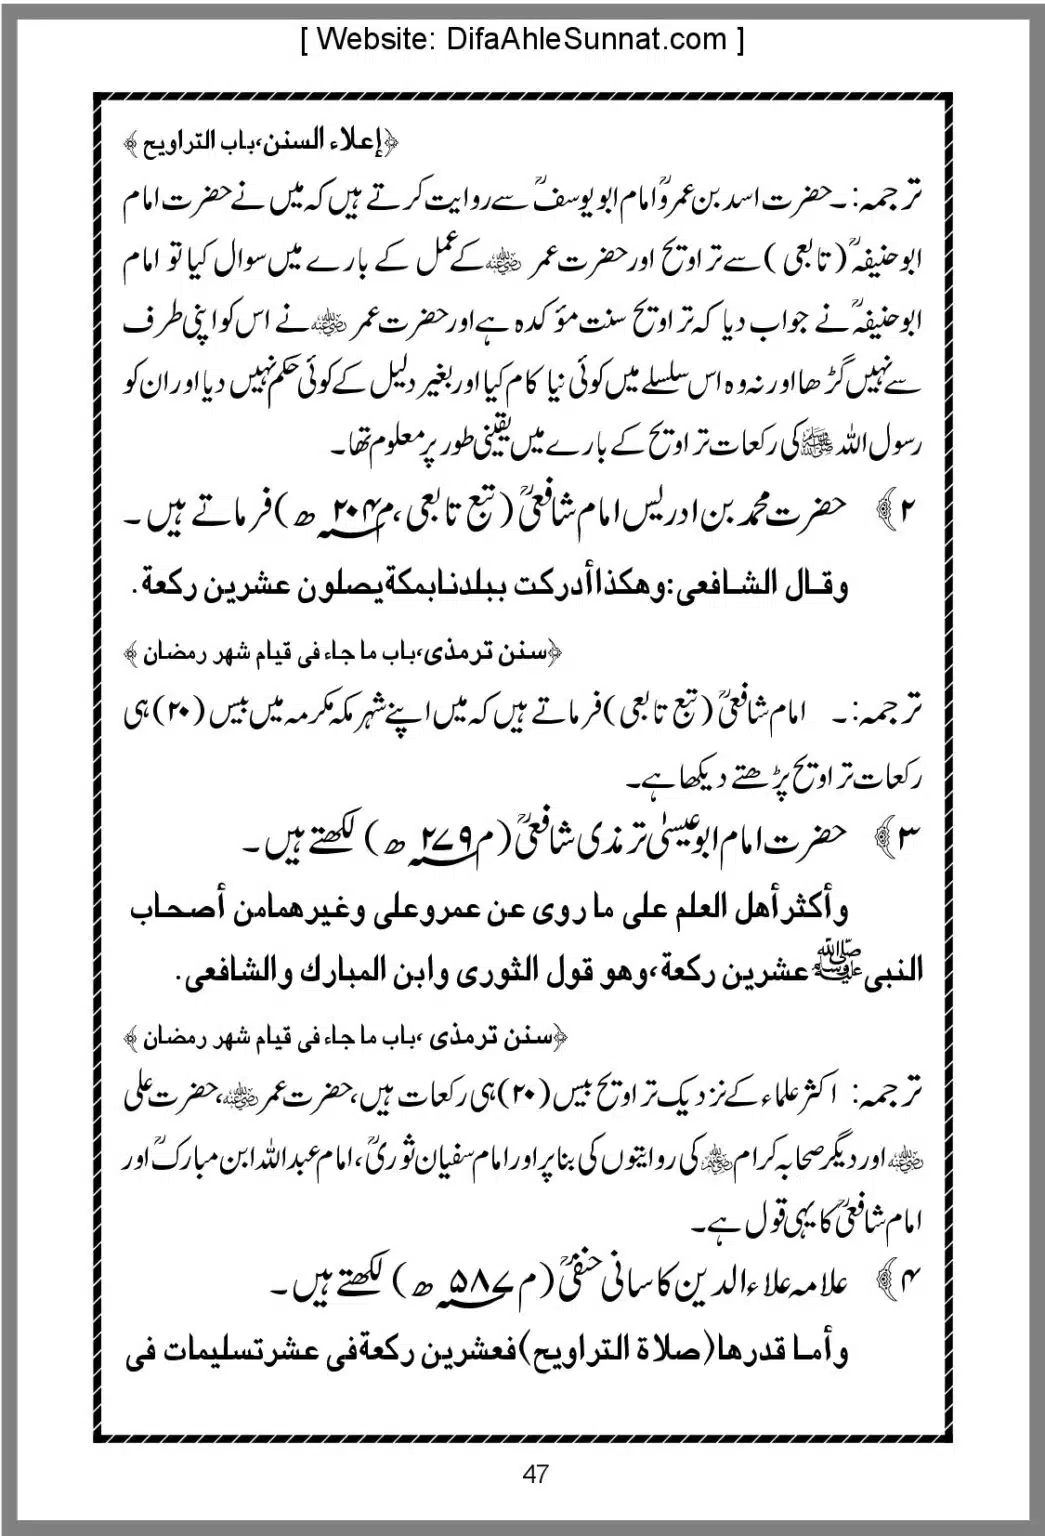 [ Website: DifaAhleSunnat.com ]
﴿إعلاء السنن،باب التراويح﴾
ترجمہ:۔حضرت اسد بن عمروؒ امام ابو یوسفؒ سے روایت کرتے ہیں کہ میں نے حضرت امام
ابو حنیفہؒ (تابعی) سے تراویح اور حضرت عمر ؓ کے عمل کے بارے میں سوال کیا تو امام
ابو حنیفہؒ نے جواب دیا کہ تراویح سنت مؤکدہ ہے اور حضرت عمر ؓ نے اس کو اپنی طرف
سے نہیں گڑھا اور نہ وہ اس سلسلے میں کوئی نیا کام کیا اور بغیر دلیل کے کوئی حکم نہیں دیا اور ان کو
رسول اللہ ﷺ کی رکعات تراویح کے بارے میں یقینی طور پر معلوم تھا۔
۲﴾ حضرت محمد بن ادریس امام شافعیؒ (تبع تابعی،م۲۰۴ھ) فرماتے ہیں۔
وقال الشافعی:وهكذا أدركت ببلدنا بمكة يصلون عشرين ركعة.
﴿سنن ترمذی،باب ما جاء فی قیام شهر رمضان﴾
ترجمہ:۔ امام شافعیؒ (تبع تابعی) فرماتے ہیں کہ میں اپنے شہر مکہ مکرمہ میں بیس (۲۰) ہی
رکعات تراویح پڑھتے دیکھا ہے۔
۳﴾ حضرت امام ابو عیسیٰ ترمذی شافعیؒ (م۲۷۹ھ) لکھتے ہیں۔
وأكثر أهل العلم على ما روى عن عمرو على وغيرهما من أصحاب
النبى ﷺ عشرين ركعة،وهو قول الثورى وابن المبارك والشافعى.
﴿سنن ترمذی ،باب ما جاء فی قیام شهر رمضان﴾
ترجمہ: اکثر علماء کے نزدیک تراویح بیس (۲۰) ہی رکعات ہیں،حضرت عمر ؓ،حضرت علی
ؓ اور دیگر صحابہ کرام ؓ کی روایتوں کی بنا پر اور امام سفیان ثوریؒ،امام عبداللہ ابن مبارکؒ اور
امام شافعیؒ کا یہی قول ہے۔
۴﴾ علامہ علاء الدین کاسانی حنفیؒ (م۵۸۷ھ) لکھتے ہیں۔
وأما قدرها(صلاة التراويح)فعشرين ركعة فى عشر تسليمات فى
47